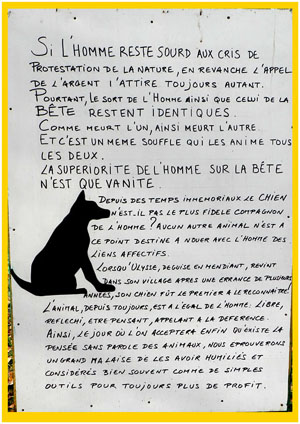 SI L'HOMME RESTE SOURD AUX CRIS DE
PROTESTATION DE LA NATURE, EN REVANCHE L'APPEL
DE L'ARGENT L'ATTIRE TOUJOURS AUTANT.
POURTANT, LE SORT DE L'HOMME AINSI QUE CELUI DE LA
BÊTE RESTENT IDENTIQUES.
COMME MEURT L'UN, AINSI MEURT L'AUTRE
ET C'EST UN MEME SOUFFLE QUI LES ANIME TOUS
LES DEUX.
LA SUPERIORITE DE L'HOMME SUR LA BÊTE
N'EST QUE VANITE.
DEPUIS DES TEMPS IMMEMORIAUX LE CHIEN
N'EST-IL PAS LE PLUS FIDELE COMPAGNON
DE L'HOMME? AUCUN AUTRE ANIMAL N'EST A
CE POINT DESTINE A NOUER AVEC L'HOMME DES
LIENS AFFECTIFS.
LORSQU'ULYSSE, DEGUISE EN MENDIANT, REVINT
DANS SON VILLAGE APRÈS UNE ERRANCE DE PLUSIEURS
ANNÉES, SON CHIEN FÛT LE PREMIER A LE RECONNAÎTRE.
L'ANIMAL, DEPUIS TOUJOURS, EST A L'EGAL DE L'HOMME. LIBRE,
REFLECHI, ETRE PENSANT, APPELANT A LA DEFERENCE.
AINSI, LE JOUR OÙ L'ON ACCEPTERA ENFIN QU'EXISTE LA
PENSÉE SANS PAROLE DES ANIMAUX, NOUS EPROUVERONS
UN GRAND MALAISE DE LES AVOIR HUMILIÉS ET
CONSIDÉRÉS BIEN SOUVENT COMME DE SIMPLES
OUTILS POUR TOUJOURS PLUS DE PROFIT.